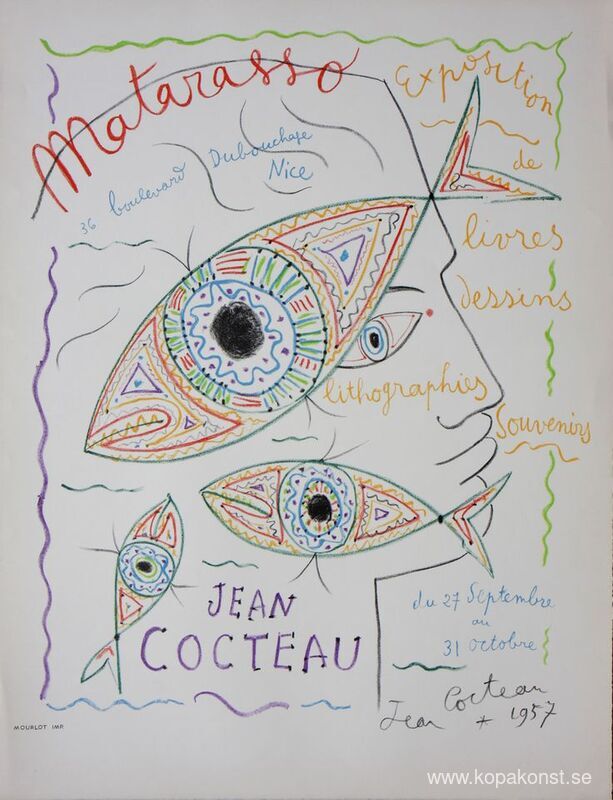 Matarasso
Exposition
de
36 boulevard Dubouchage
Nice
livres
dessins
lithographies
Souvenirs
JEAN
COCTEAU
du 27 Septembre
au
31 octobre
Jean Cocteau
1957
MOURLOT IMP.
www.kopakonst.se